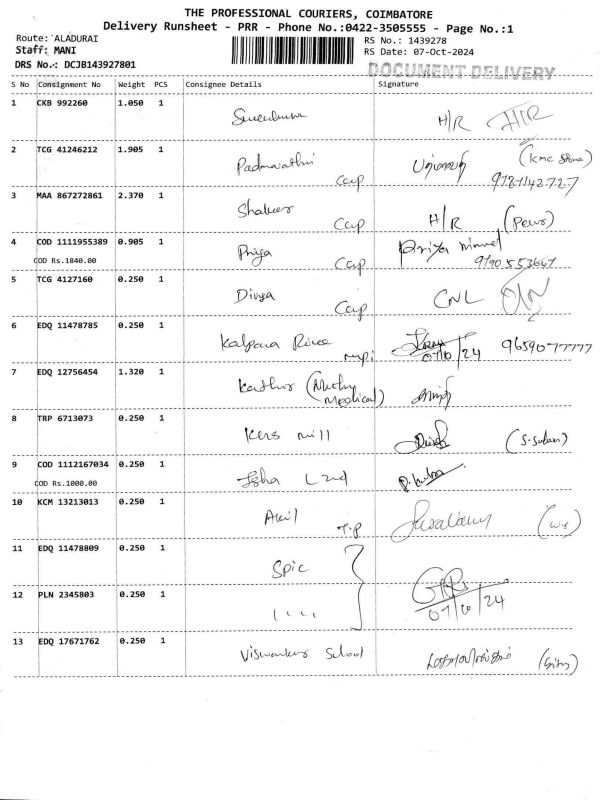 THE PROFESSIONAL COURIERS, COIMBATORE
Delivery Runsheet - PRR - Phone No.:0422-3505555 - Page No.:1
Route: ALADURAI
RS No.: 1439278
Staff: MANI
RS Date: 07-Oct-2024
DRS No.: DCJB143927801
DOCUMENT DELIVERY
S No Consignment No Weight PCS Consignee Details Signature
1 CKB 992260 1.050 1 H/R H/R
2 TCG 41246212 1.905 1 Padmavathi Cap
9787142727
3 MAA 867272861 2.370 1 Cap H/R
4 COD 1111955389 0.905 1 Priya Cap Priya
COD Rs.1840.00 9790553667
5 TCG 4127160 0.250 1 Divya Cap CNL
6 EDQ 11478785 0.250 1 Kalpana Rice 07/10/24 9659077777
7 EDQ 12756454 1.320 1 Kathir (Muthu Medical)
8 TRP 6713073 0.250 1 Kers mill
9 COD 1112167034 0.250 1
COD Rs.1000.00
10 KCM 13213013 0.250 1 T.P
11 EDQ 11478809 0.250 1 Spic
12 PLN 2345803 0.250 1 ,, ,, 07/10/24
13 EDQ 17671762 0.250 1 School